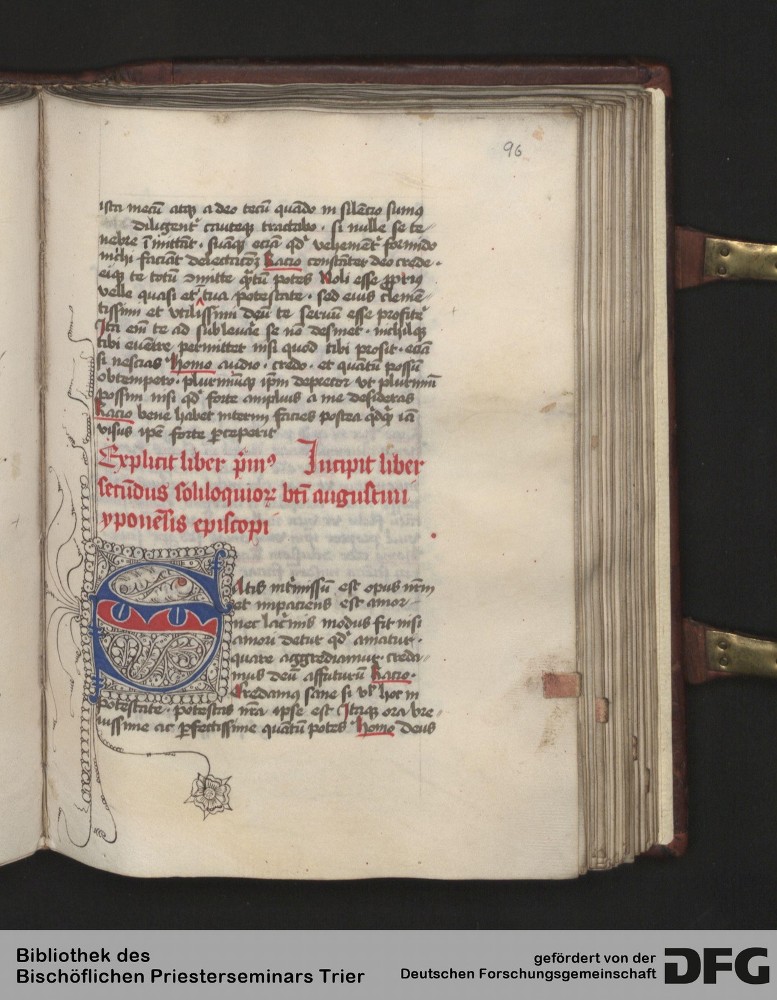 96
ista mecū atq̄ adeo tecū quādo in silētio sumꝰ
diligent᷑ cauteq̄ tractabo · si nulle se te
nebre īmittāt · suāq̄ eciā qd᷑ vehement᷑ formido
michi faciāt delectacōꝫ Racio constāter deo crede ·
eiq̄ te totū ɔmitte q̄tū potes Noli esse ꝓpriꝰ
velle quasi et tua potestate · sed eius clemē
tissimi et vtilissimi deū te seruū esse profite᷑
Ita em̄ te ad subleuare se nō desinet · nichilq̄
tibi euēire permittet nisi quod tibi prosit · eciā
si nescias Homo audio · credo · et quātū possū
obtempero · plurimūq̄ ip̄m deprecor vt plurimū
possim nisi qd᷑ forte amplius a me desideras
Racio bene habet interim facies postea q̄dq̄d iā
visus ip̄e forte p̄ceperit
Explicit liber p̄imꝰ Incipit liber
secūdus soliloquioꝝ bt̄i augustini
yponēsis episcopi
Satis int᷑missū est opus nr̄m
et impaciens est amor
nec lac᷑mis modus fit nisi
amori detur qd᷑ amatur ·
quare aggrediamur · creda
mus deū affuturū Racio ·
Credamꝰ sane si vl̄ hoc in
potestate · potestas nr̄a ipse est Itaq̄ ora bre
uissime ac ꝑfectissime quātū potes Homo deus
Bibliothek des
Bischöflichen Priesterseminars Trier
gefördert von der
Deutschen Forschungsgemeinschaft
DFG